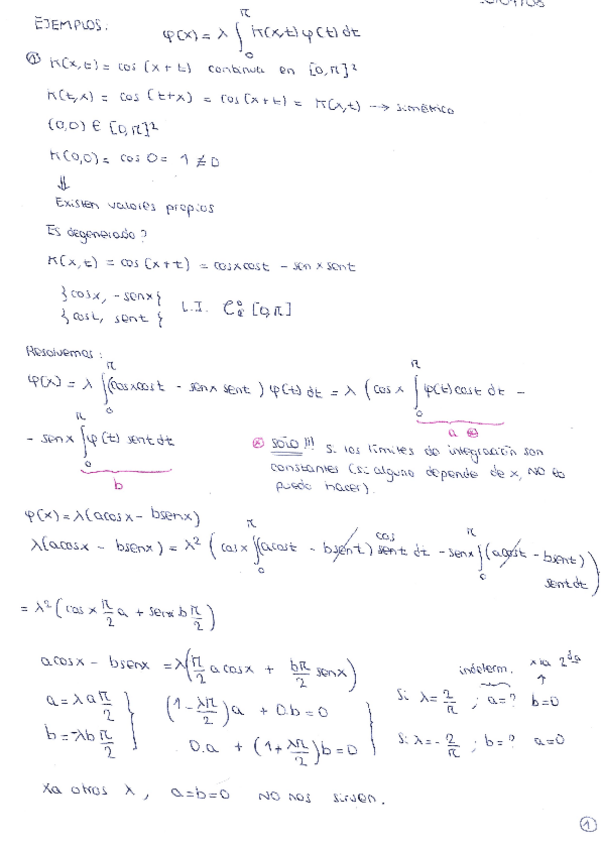 EJEMPLOS:
φ(x) = λ ∫₀^π K(x,t) φ(t) dt
① K(x,t) = cos (x+t) continua en [0,π]²
K(t,x) = cos (t+x) = cos (x+t) = K(x,t) → simétrico
(0,0) ∈ [0,π]²
K(0,0) = cos 0 = 1 ≠ 0
⇓
Existen valores propios
Es degenerado?
K(x,t) = cos (x+t) = cosxcost - senxsent
{cosx, -senx}
{cost, sent} L.I. [0,π]
Resolvemos:
φ(x) = λ ∫₀^π (cosxcost - senxsent) φ(t) dt = λ (cosx ∫₀^π φ(t) cost dt -
a ⊛
- senx ∫₀^π φ(t) sent dt
b
⊛ SOLO!!! Si los límites de integración son
constantes (si alguno depende de x, NO lo
puedo hacer).
φ(x) = λ(acosx - bsenx)
λ(acosx - bsenx) = λ² (cosx ∫₀^π (acost - bsent) cos sent dt - senx ∫₀^π (acost - bsent)
sent dt)
= λ² (cosx π/2 a + senx b π/2)
acosx - bsenx = λ(π/2 acosx + bπ/2 senx)
indeterm. xla 2ª
a = λa π/2
b = -λb π/2
(1 - λπ/2)a + 0.b = 0
0.a + (1 + λπ/2)b = 0
Si λ = 2/π ; a=? b=0
Si λ = - 2/π ; b=? a=0
Xa otros λ, a=b=0 NO nos sirven.
①